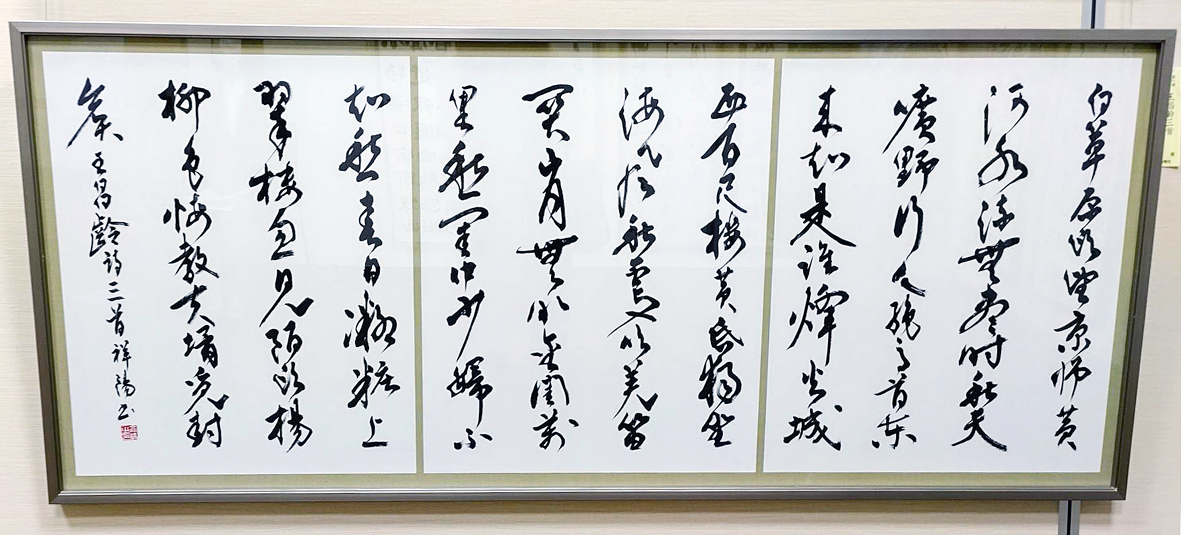 白草原頭望京師黄
河水流無盡時秋天
曠野行人絶馬首東
来知是誰烽火城
西百尺樓黄昏獨坐
海風秋更吹羌笛
關山月無那金閨萬
里愁閨中少婦不
知愁春日凝粧上
翠樓忽見陌頭楊
柳色悔教夫壻覓封
矦 王昌齡詩三首祥陽書